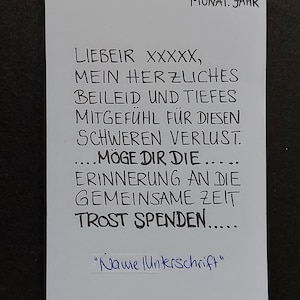 MONAT. JAHR
LIEBEIR XXXXX,
MEIN HERZLICHES
BEILEID UND TIEFES
MITGEFÜHL FÜR DIESEN
SCHWEREN VERLUST.
....MÖGE DIR DIE.....
ERINNERUNG AN DIE
GEMEINSAME ZEIT
TROST SPENDEN.....
"Name/Unterschrift"